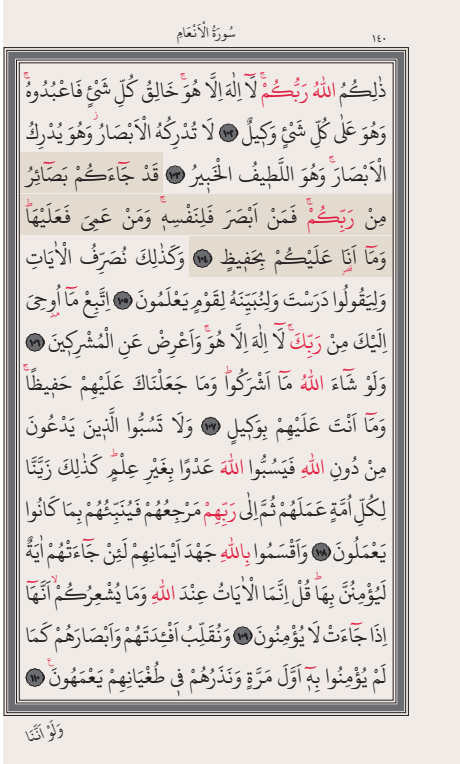 سُورَةُ الْاَنْعَامِ
١٤٠
ذٰلِكُمُ اللّٰهُ رَبُّكُمْۚ لَٓا اِلٰهَ اِلَّا هُوَۚ خَالِقُ كُلِّ شَيْءٍ فَاعْبُدُوهُۚ
وَهُوَ عَلٰى كُلِّ شَيْءٍ وَك۪يلٌ ﴿١٠٢﴾ لَا تُدْرِكُهُ الْاَبْصَارُۘ وَهُوَ يُدْرِكُ
الْاَبْصَارَۚ وَهُوَ اللَّط۪يفُ الْخَب۪يرُ ﴿١٠٣﴾ قَدْ جَٓاءَكُمْ بَصَٓائِرُ
مِنْ رَبِّكُمْۚ فَمَنْ اَبْصَرَ فَلِنَفْسِه۪ۚ وَمَنْ عَمِيَ فَعَلَيْهَاۜ
وَمَٓا اَنَا۬ عَلَيْكُمْ بِحَف۪يظٍ ﴿١٠٤﴾ وَكَذٰلِكَ نُصَرِّفُ الْاٰيَاتِ
وَلِيَقُولُوا دَرَسْتَ وَلِنُبَيِّنَهُ لِقَوْمٍ يَعْلَمُونَ ﴿١٠٥﴾ اِتَّبِعْ مَٓا اُو۫حِيَ
اِلَيْكَ مِنْ رَبِّكَۚ لَٓا اِلٰهَ اِلَّا هُوَۚ وَاَعْرِضْ عَنِ الْمُشْرِك۪ينَ ﴿١٠٦﴾
وَلَوْ شَٓاءَ اللّٰهُ مَٓا اَشْرَكُواۜ وَمَا جَعَلْنَاكَ عَلَيْهِمْ حَف۪يظًاۚ
وَمَٓا اَنْتَ عَلَيْهِمْ بِوَك۪يلٍ ﴿١٠٧﴾ وَلَا تَسُبُّوا الَّذ۪ينَ يَدْعُونَ
مِنْ دُونِ اللّٰهِ فَيَسُبُّوا اللّٰهَ عَدْوًا بِغَيْرِ عِلْمٍۜ كَذٰلِكَ زَيَّنَّا
لِكُلِّ اُمَّةٍ عَمَلَهُمْۖ ثُمَّ اِلٰى رَبِّهِمْ مَرْجِعُهُمْ فَيُنَبِّئُهُمْ بِمَا كَانُوا
يَعْمَلُونَ ﴿١٠٨﴾ وَاَقْسَمُوا بِاللّٰهِ جَهْدَ اَيْمَانِهِمْ لَئِنْ جَٓاءَتْهُمْ اٰيَةٌ
لَيُؤْمِنُنَّ بِهَاۜ قُلْ اِنَّمَا الْاٰيَاتُ عِنْدَ اللّٰهِ وَمَا يُشْعِرُكُمْۙ اَنَّهَٓا
اِذَا جَٓاءَتْ لَا يُؤْمِنُونَ ﴿١٠٩﴾ وَنُقَلِّبُ اَفْـِٔدَتَهُمْ وَاَبْصَارَهُمْ كَمَا
لَمْ يُؤْمِنُوا بِه۪ٓ اَوَّلَ مَرَّةٍ وَنَذَرُهُمْ ف۪ي طُغْيَانِهِمْ يَعْمَهُونَ۟ ﴿١١٠﴾
وَلَوْ اَنَّنَا